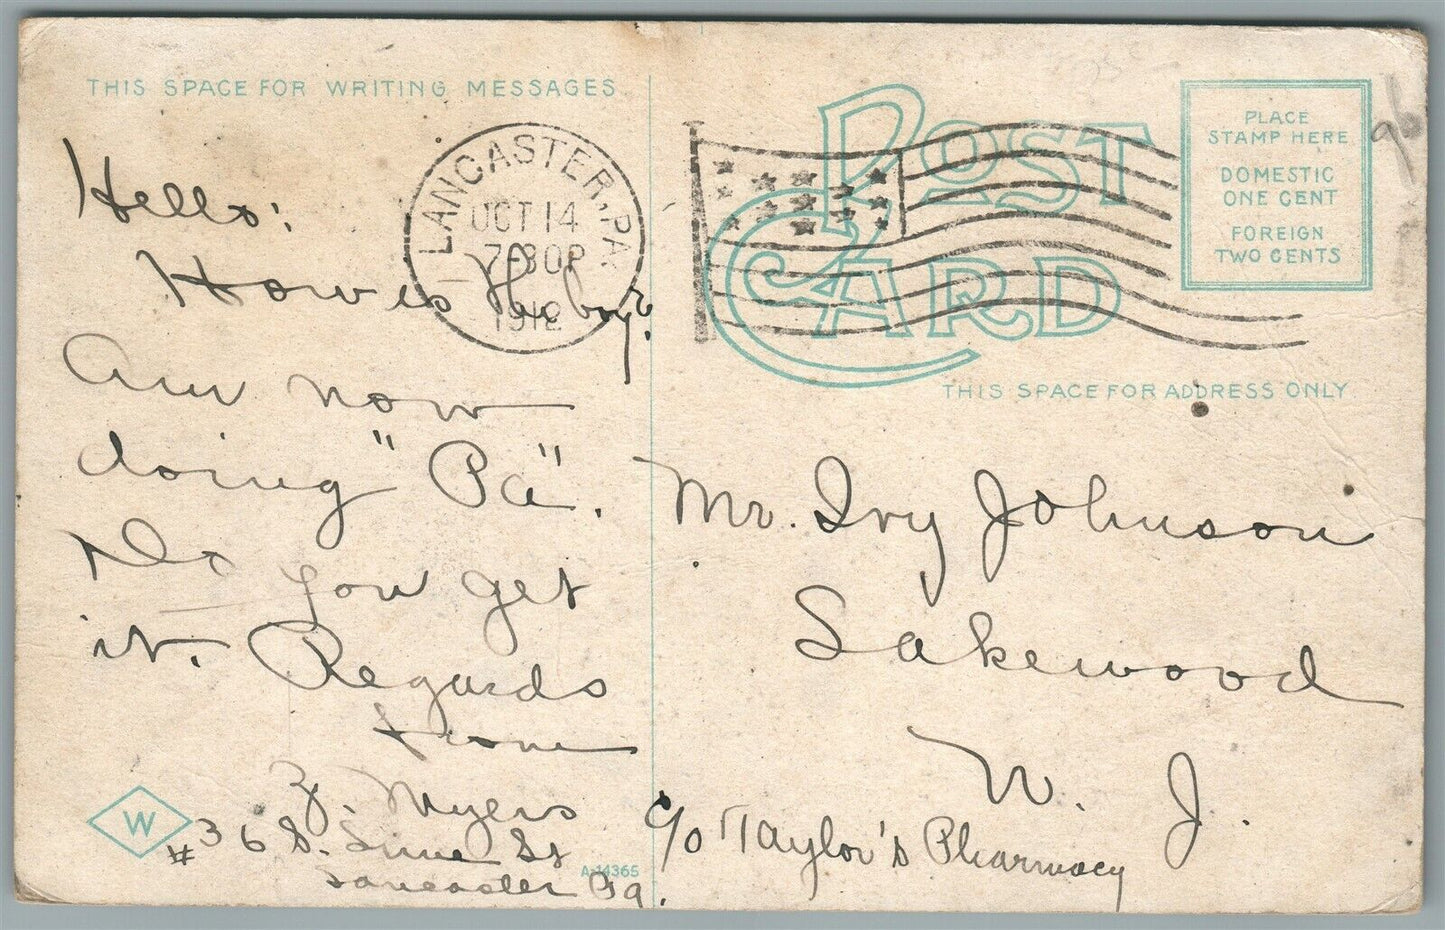 THIS SPACE FOR WRITING MESSAGES
Hello:
How is
Am now
doing "Pa".
Do you get
it. Regards
from
Z. Myers
#36 S. Lime St
Lancaster Pa.
W
A-14365
LANCASTER, PA.
OCT 14
7-30P
1912
POST CARD
PLACE
STAMP HERE
DOMESTIC
ONE CENT
FOREIGN
TWO CENTS
THIS SPACE FOR ADDRESS ONLY.
Mr. Ivy Johnson
Lakewood
N. J.
c/o Taylor's Pharmacy